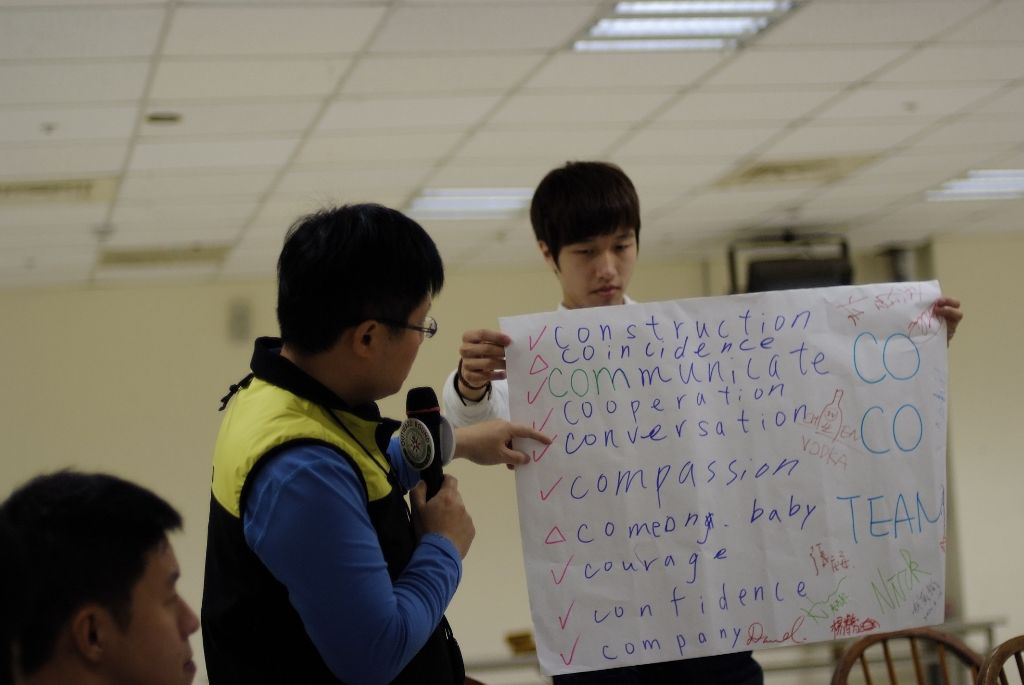 construction
coincidence
communicate
cooperation
conversation
compassion
comeong. baby
courage
confidence
company
CO
CO
TEAM
VODKA
Daniel.